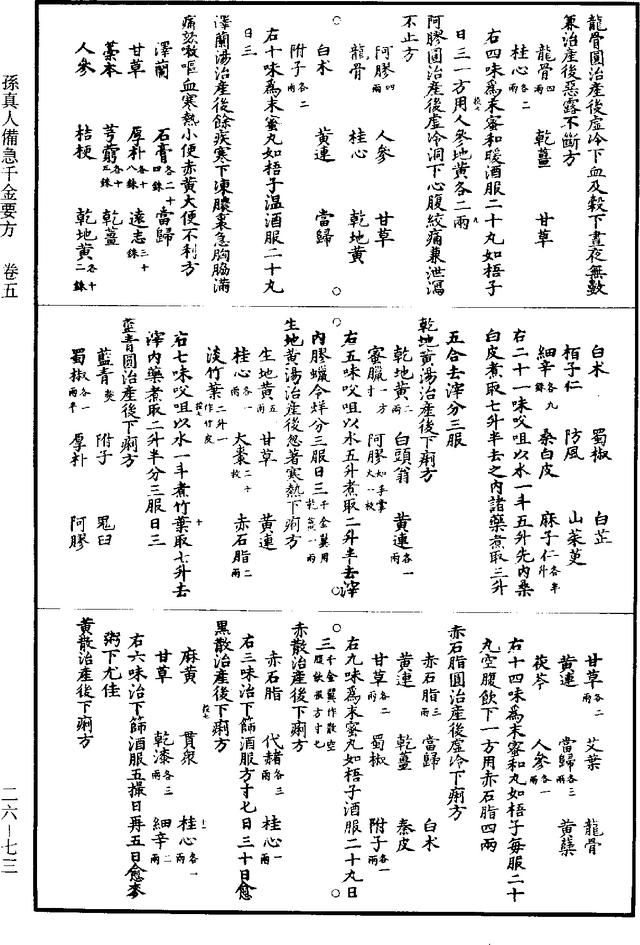 龍骨圓治產後虛冷下血及穀下晝夜無數
兼治產後惡露不斷方
龍骨四兩 乾薑 甘草
桂心各二兩
右四味為末蜜和暖酒服二十丸如梧子
日三一方用人參地黃各二兩
阿膠圓治產後虛冷洞下心腹絞痛兼泄瀉
不止方
阿膠四兩 人參 甘草
龍骨 桂心 乾地黃
白朮 黃連 當歸
附子各二兩
右十味為末蜜丸如梧子温酒服二十丸
日三
澤蘭湯治產後餘疾寒下凍膿裏急胸脇滿
痛欬嗽嘔血寒熱小便赤黃大便不利方
澤蘭 石膏各二十四銖 當歸
甘草 厚朴各十八銖 遠志三十銖
藁本 芎藭各十五銖 乾薑
人參 桔梗 乾地黃各十二銖
白朮 蜀椒 白芷
栢子仁 防風 山茱萸
細辛各九銖 桑白皮 麻子仁各半升
右二十一味㕮咀以水一斗五升先內桑
白皮煮取七升半去之內諸藥煮取三升
五合去滓分三服
乾地黃湯治產後下痢方
乾地黃二兩 白頭翁 黃連各一兩
蜜臘一方寸 阿膠如手掌大一枚
右五味㕮咀以水五升煮取二升半去滓
內膠蠟令烊分三服日三千金翼用乾薑一兩
生地黃湯治產後忽著寒熱下痢方
生地黃五兩 甘草 黃連
桂心各一兩 大棗二十枚 赤石脂二兩
淡竹葉二升一作竹皮
右七味㕮咀以水一斗煮竹葉取七升去
滓內藥煮取二升半分三服日三
藍青圓治產後下痢方
藍青熬 附子 鬼臼
蜀椒各一兩半 厚朴 阿膠
甘草各二兩 艾葉 龍骨
黃連 當歸各三兩 黃蘗
茯苓 人參各一兩
右十四味為末蜜和丸如梧子每服二十
丸空腹飲下一方用赤石脂四兩
赤石脂圓治產後虛冷下痢方
赤石脂三兩 當歸 白朮
黃連 乾薑 秦皮
甘草各二兩 蜀椒 附子各一兩
右九味為末蜜丸如梧子酒服二十九日
三千金翼作散空腹飲服方寸匕
赤散治產後下痢方
赤石脂 代赭各三兩 桂心一兩
右三味治下篩酒服方寸匕日三十日愈
黑散治產後下痢方
麻黃 貫衆 桂心各一兩
甘草 乾漆各三兩 細辛二兩
右六味治下篩酒服五撮日再五日愈麥
粥下尤佳
黃散治產後下痢方
孫真人備急千金要方 卷五
二六—七三